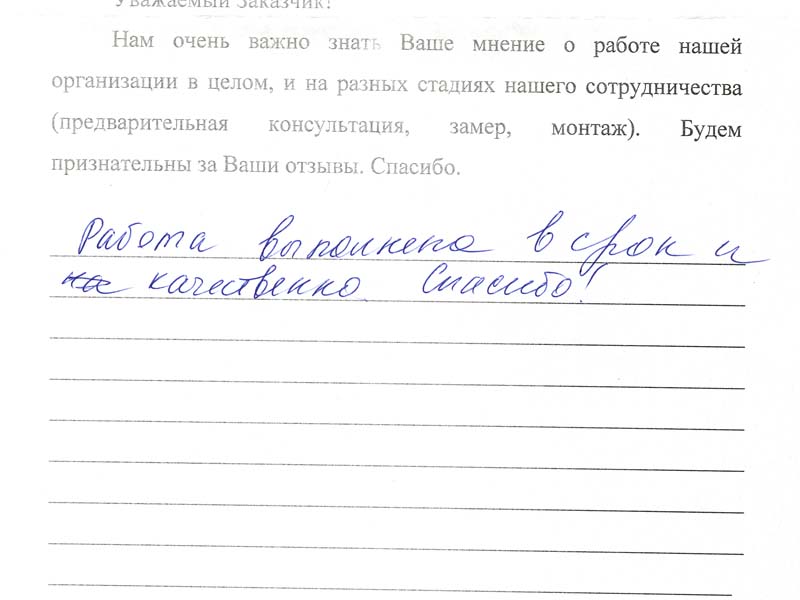 Уважаемый Заказчик!
Нам очень важно знать Ваше мнение о работе нашей
организации в целом, и на разных стадиях нашего сотрудничества
(предварительная консультация, замер, монтаж). Будем
признательны за Ваши отзывы. Спасибо.
Работа выполнена в срок и
качественно. Спасибо!